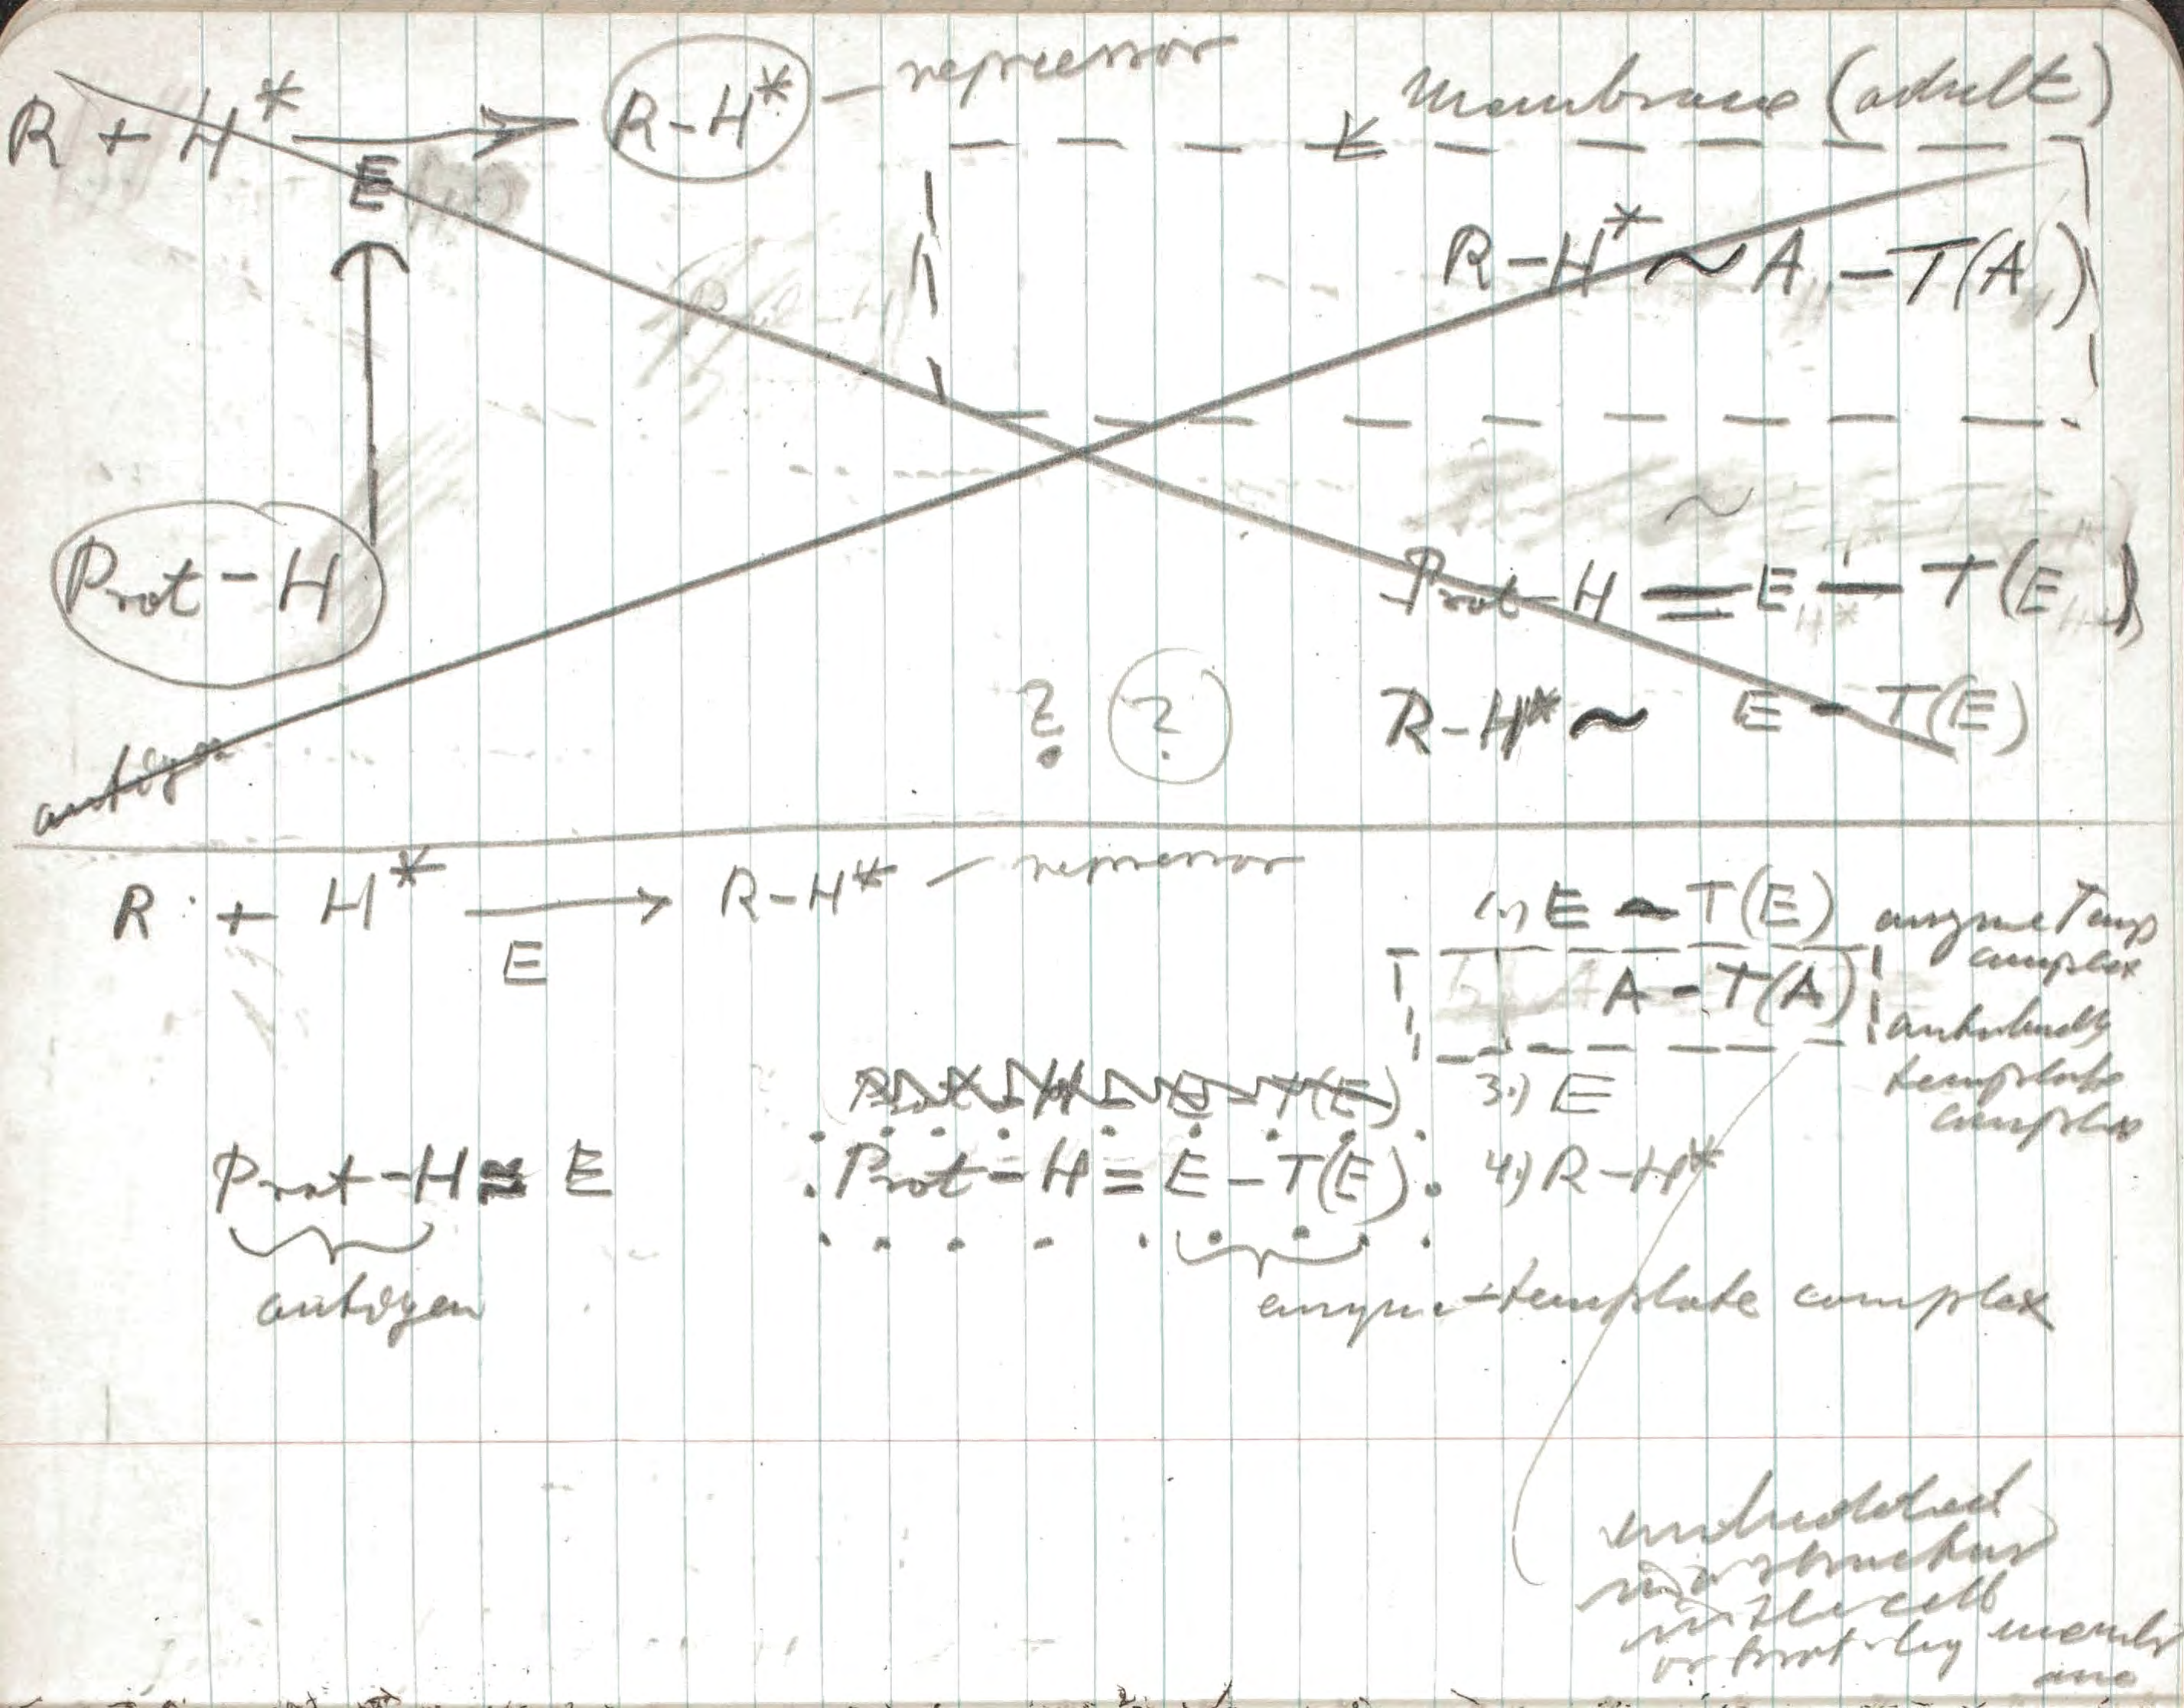 R + H* → R-H* — repressor
E
Membrane (adult)
R-H* ~ A - T(A)
Prot-H
Prot-H = E - T(E)
? ?
R-H* ~ E - T(E)
antigen
R + H* → R-H* — repressor
E
1) E - T(E) enzyme Temp
complex
A - T(A) antibody
template
complex
Prot-H E - T(E)
3.) E
Prot-H ≈ E
Prot-H = E - T(E)
4.) R-H*
antigen
enzyme-template complex
embedded
in a structure
in the cell
or prot. by membr
ane